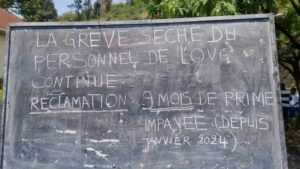 LA GRÈVE SECHE DU
PERSONNEL DE L'OVG
CONTINUE
RECLAMATION : 9 MOIS DE PRIME
IMPAYÉE (DEPUIS
JANVIER 2024)